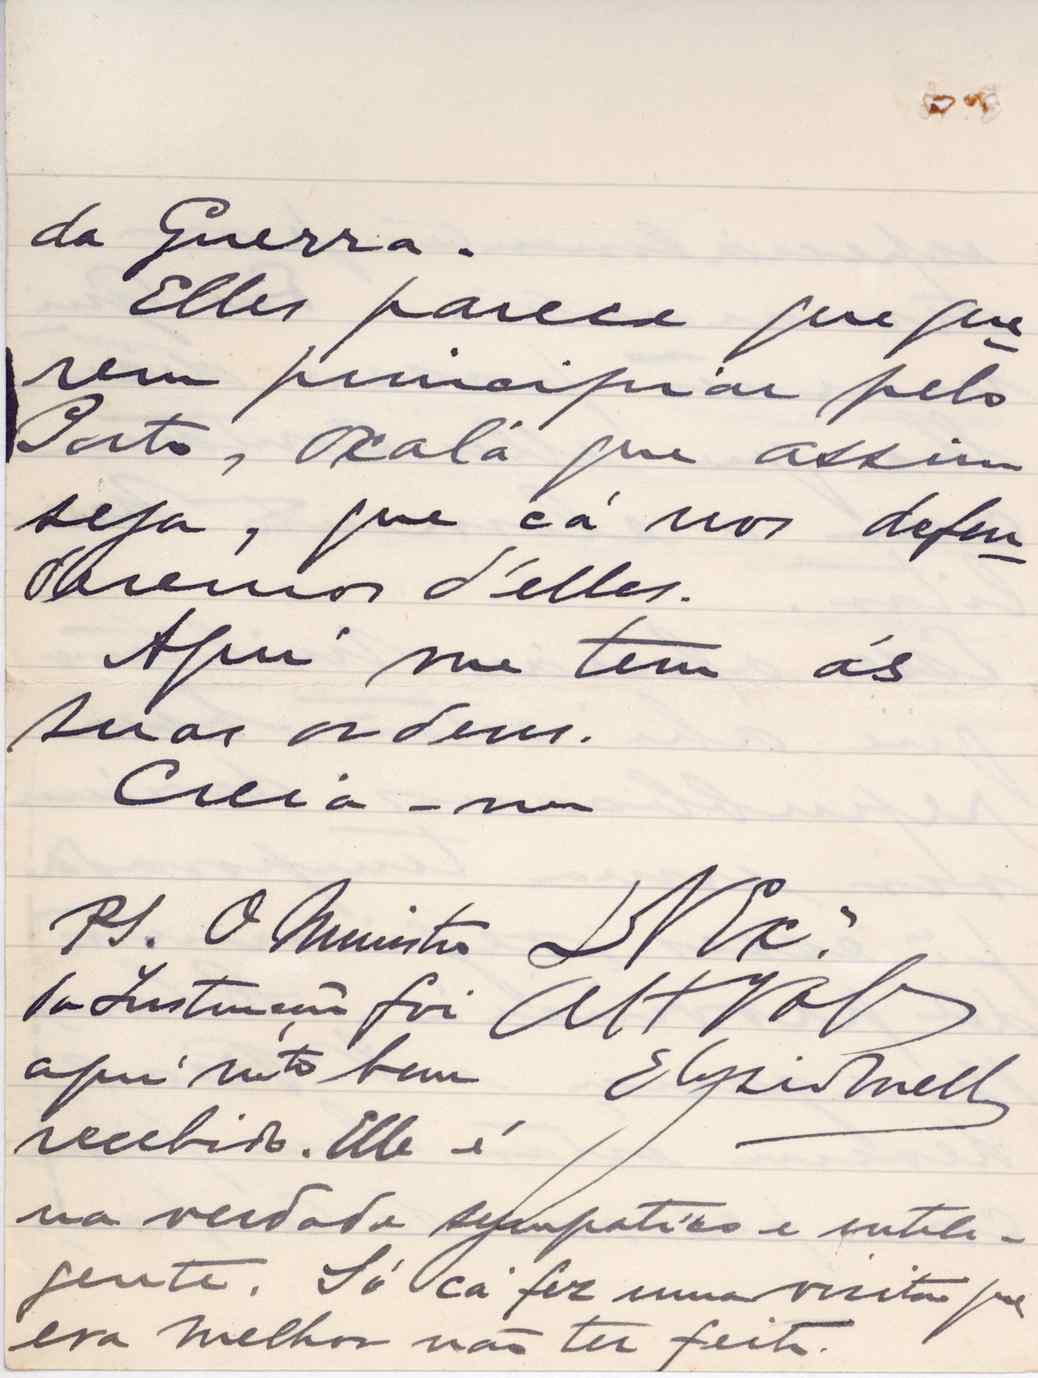 da Guerra.
Elles parece que que-
rem principiar pelo
Porto, oxalá que assim
seja, que cá nos defen-
deremos d'elles.
Aqui me tem ás
suas ordens.
Creia-me
De V Exª
Att Vor
Elysio Mello
PS. O Ministro
da Instrucção foi
aqui mto bem
recebido. Elle é
na verdade sympatico e intele-
gente. Só cá fez uma visita que
era melhor não ter feito.